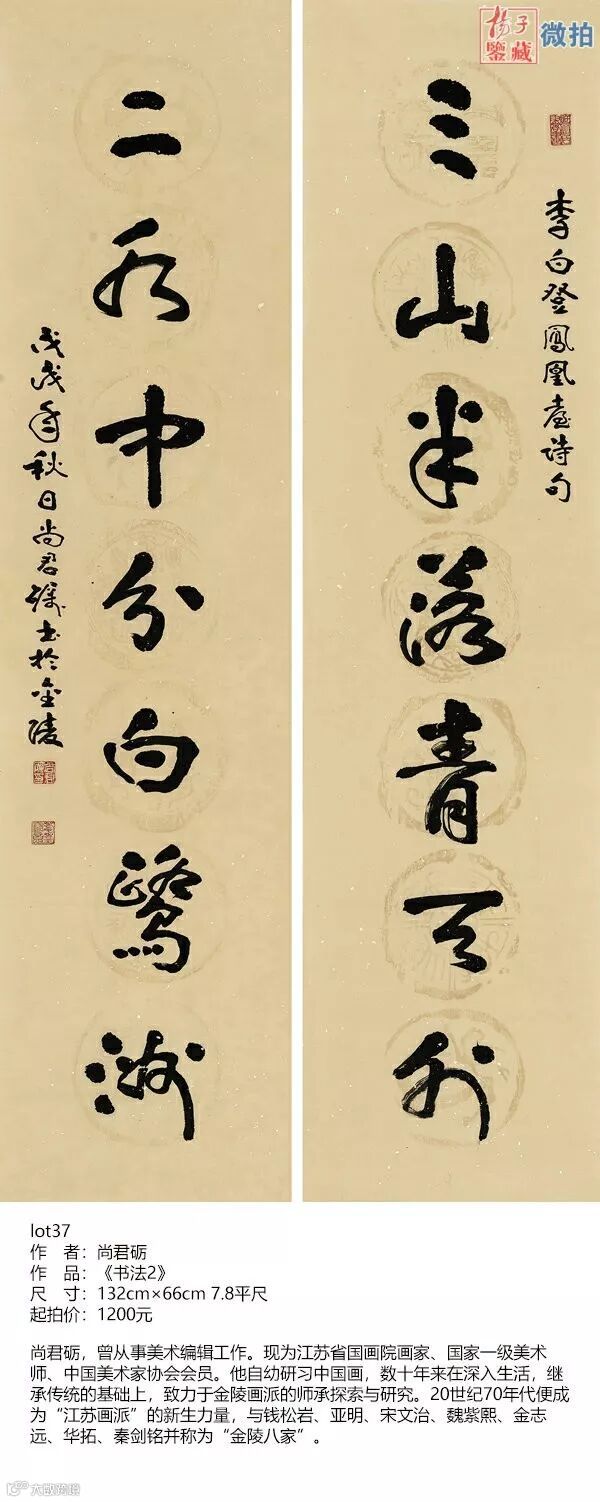 揚子
鑒藏
微拍
李白登鳳凰臺詩句
三山半落青天外
二水中分白鷺洲
戊戌年秋日尚君礪书於金陵
lot37
作 者：尚君砺
作 品：《书法2》
尺 寸：132cm×66cm 7.8平尺
起拍价：1200元
尚君砺，曾从事美术编辑工作。现为江苏省国画院画家、国家一级美术
师、中国美术家协会会员。他自幼研习中国画，数十年来在深入生活，继
承传统的基础上，致力于金陵画派的师承探索与研究。20世纪70年代便成
为“江苏画派”的新生力量，与钱松岩、亚明、宋文治、魏紫熙、金志
远、华拓、秦剑铭并称为“金陵八家”。